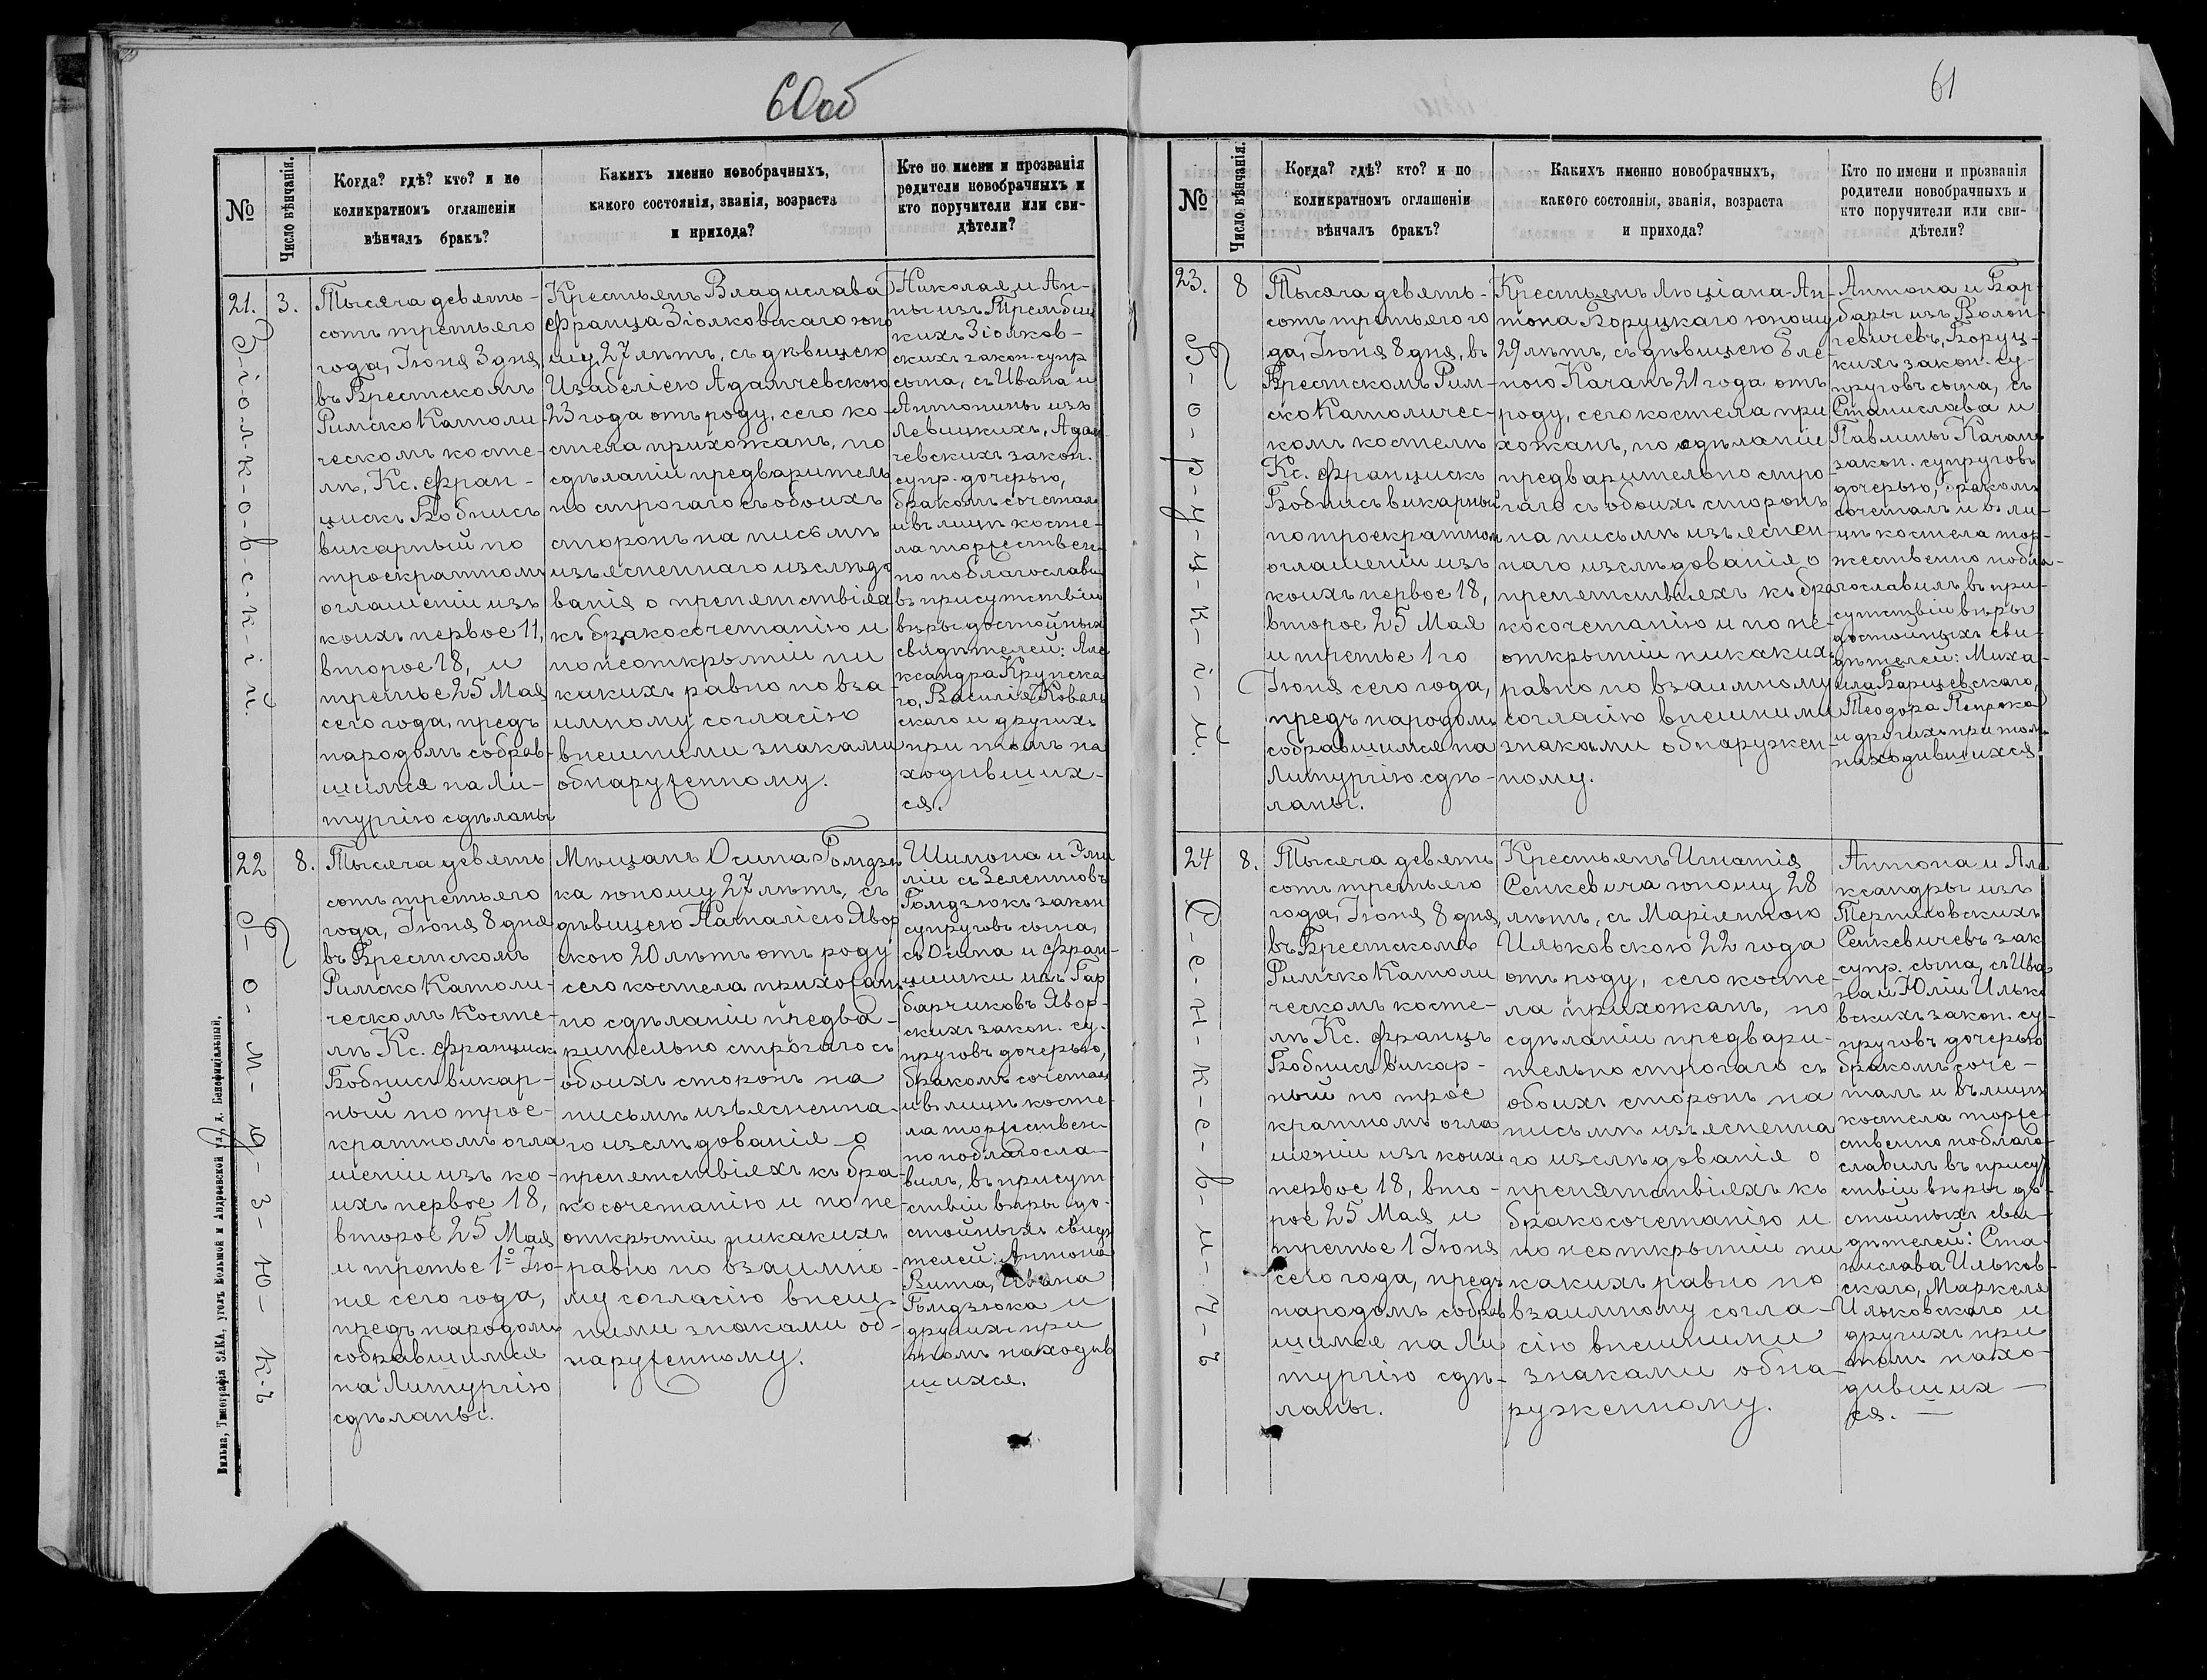 60об
№
Число вѣнчанія.
Когда? гдѣ? кто? и по
коликратномъ оглашеніи
вѣнчалъ бракъ?
Какихъ именно новобрачныхъ,
какого состоянія, званія, возраста
и прихода?
Кто по имени и прозванія
родители новобрачныхъ и
кто поручители или сви-
дѣтели?
21.
3.
З-і-о-л-к-о-в-с-к-і-й.
Тысяча девять-
сотъ третьяго
года, Іюня 3 дня,
въ Брестскомъ
Римско Католи-
ческомъ косте-
лѣ, Кс. Фран-
цискъ Бобнисъ
викарный по
троекратномъ
оглашеніи изъ
коихъ первое 11,
второе 18, и
третье 25 Мая
сего года, предъ
народомъ собрав-
шимся на Ли-
тургію сдѣланы
Крестьянъ Владислава
Франца Зіолковскаго юно
шу, 27 лѣтъ, съ дѣвицею
Изабеліею Адамчевскою
23 года отъ роду, сего ко-
стела прихожанъ, по
сдѣланіи предваритель
но строгаго съ обоихъ
сторонъ на письмѣ
изъясненнаго изслѣдо
ванія о препятствіяхъ
къ бракосочетанію и
по неоткрытіи ни
какихъ равно по вза-
имному согласію
внешними знаками
обнаруженному.
Николая и Ан-
ны изъ Трембиц
кихъ Зіолков-
скихъ закон. супр
сына, съ Ивана и
Антонины изъ
Левицкихъ, Адам
чевскихъ закон.
супр. дочерью,
бракомъ сочеталъ
и въ лицѣ косте-
ла торжествен-
но поблагослави
въ присутствіи
вѣры достойныхъ
свидѣтелей: Але
ксандра Крупска
го, Василія Коваль
скаго и другихъ
при томъ на
ходивших-
ся.
22
8.
Г-о-м-д-з-ю-к-ъ
Тысяча девять
сотъ третьяго
года, Іюня 8 дня
въ Брестскомъ
Римско Католи-
ческомъ Косте-
лѣ Кс. Францискъ
Бобнисъ викар-
ный по трое-
кратномъ огла
шеніи изъ ко-
ихъ первое 18,
второе 25 Мая
и третье 1º Ію-
ня сего года,
предъ народомъ
собравшимся
на Литургію
сдѣланы.
Мѣщанъ Осипа Гомдзю
ка юношу 27 лѣтъ, съ
дѣвицею Наталіею Явор
скою 20 лѣтъ отъ роду,
сего костела прихожанъ
по сдѣланіи предва-
рительно строгаго съ
обоихъ сторонъ на
письмѣ изъясненна-
го изслѣдованія о
препятствіяхъ къ бра-
косочетанію и по не-
открытіи никакихъ
равно по взаимно-
му согласію внеш-
ними знаками об-
наруженному.
Шимона и Эми
ліи съ Зелентовъ
Гомдзюкъ закон
супруговъ сына,
съ Осипа и Фран-
цишки изъ Гар
барчиковъ Явор-
скихъ закон. су-
пруговъ дочерью,
бракомъ сочеталъ
и въ лицѣ косте-
ла торжествен-
но поблагосла-
вилъ, въ присут
ствіи вѣры до-
стойныхъ свидѣ
телей: Антона
Вита, Ивана
Гомдзюка и
другихъ при
томъ находив
шихся.
Вильна, Типографія ЗАКА, уголъ Большой и Андреевской ул., д. Бенефиціальный.
61
№
Число вѣнчанія.
Когда? гдѣ? кто? и по
коликратномъ оглашеніи
вѣнчалъ бракъ?
Какихъ именно новобрачныхъ,
какого состоянія, званія, возраста
и прихода?
Кто по имени и прозванія
родители новобрачныхъ и
кто поручители или сви-
дѣтели?
23.
8
Б-о-р-у-ц-к-і-й.
Тысяча девять-
сотъ третьяго го
да, Іюня 8 дня, въ
Брестскомъ Рим-
ско Католичес-
комъ костелѣ
Кс. Францискъ
Бобнисъ викарный
по троекратномъ
оглашеніи изъ
коихъ первое 18,
второе 25 Мая
и третье 1 го
Іюня сего года,
предъ народомъ
собравшимся на
Литургію сдѣ-
ланы.
Крестьянъ Люціана-Ан-
тона Боруцкаго юношу
29 лѣтъ, съ дѣвицею Еле-
ною Качанъ 21 года отъ
роду, сего костела при
хожанъ, по сдѣланіи
предварительно стро
гаго съ обоихъ сторонъ
на письмѣ изъяснен-
наго изслѣдованія о
препятствіяхъ къ бра
косочетанію и по не-
открытіи никакихъ
равно по взаимному
согласію внешними
знаками обнаружен-
ному.
Антона и Бар-
бары изъ Волон-
цевичевъ, Боруц-
кихъ закон. су-
пруговъ сына, съ
Станислава и
Павлины Качанъ
закон. супруговъ
дочерью, бракомъ
сочеталъ и въ ли-
цѣ костела тор-
жественно побла-
гославилъ, въ при-
сутствіи вѣры
достойныхъ сви-
дѣтелей: Миха-
ила Барщевскаго,
Теодора Пепрока
и другихъ при томъ
находившихся
24
8.
С-е-н-к-е-в-и-ч-ъ
Тысяча девять
сотъ третьяго
года, Іюня 8 дня,
въ Брестскомъ
Римско Католи
ческомъ косте-
лѣ Кс. Францъ
Бобнисъ викар-
ный по трое
кратномъ огла
шеніи изъ коихъ
первое 18, вто-
рое 25 Мая и
третье 1 Іюня
сего года, предъ
народомъ собрав
шимся на Ли
тургію сдѣ-
ланы.
Крестьянъ Игнатія
Сенкевича юношу 28
лѣтъ, съ Маріянною
Ильковскою 22 года
отъ роду, сего косте-
ла прихожанъ, по
сдѣланіи предвари-
тельно строгаго съ
обоихъ сторонъ на
письмѣ изъясненна
го изслѣдованія о
препятствіяхъ къ
бракосочетанію и
по неоткрытіи ни
какихъ равно по
взаимному согла-
сію внешними
знаками обна-
руженному.
Антона и Але
ксандры изъ
Терпиловскихъ
Сенкевичевъ зак
супр. сына, съ Ива
на и Юліи Илько
вскихъ закон. су-
пруговъ дочерью
бракомъ соче-
талъ и въ лицѣ
костела торже-
ственно поблаго-
славилъ въ присут
ствіи вѣры до-
стойныхъ сви-
дѣтелей: Ста-
нислава Ильков-
скаго, Маркеля
Ильковскаго и
другихъ при
томъ нахо-
дивших-
ся.